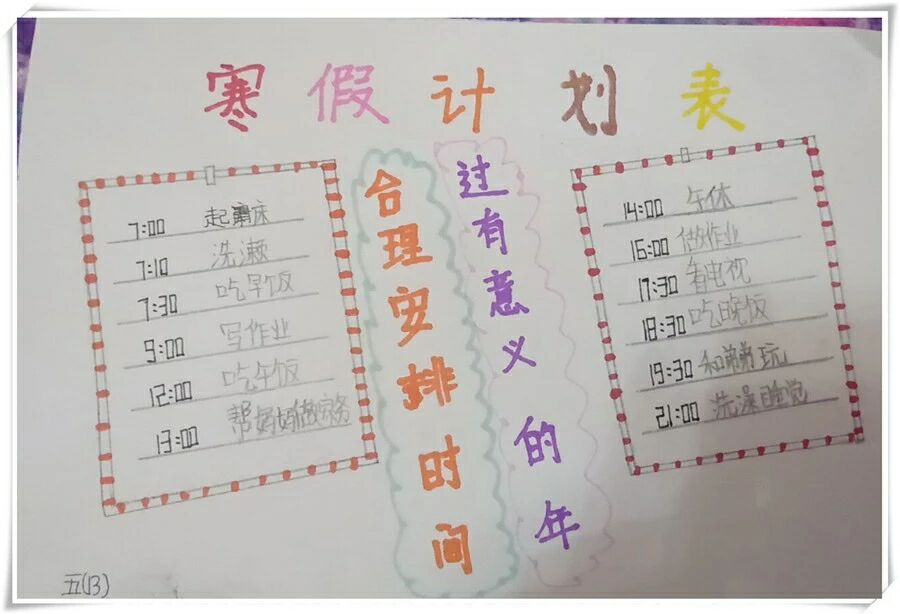 寒假计划表
7:00 起床
7:10 洗漱
7:30 吃早饭
9:00 写作业
12:00 吃午饭
13:00 帮妈妈做家务
合理安排时间
过有意义的年
14:00 午休
16:00 做作业
17:30 看电视
18:30 吃晚饭
19:30 和弟弟玩
21:00 洗澡睡觉
五(13)